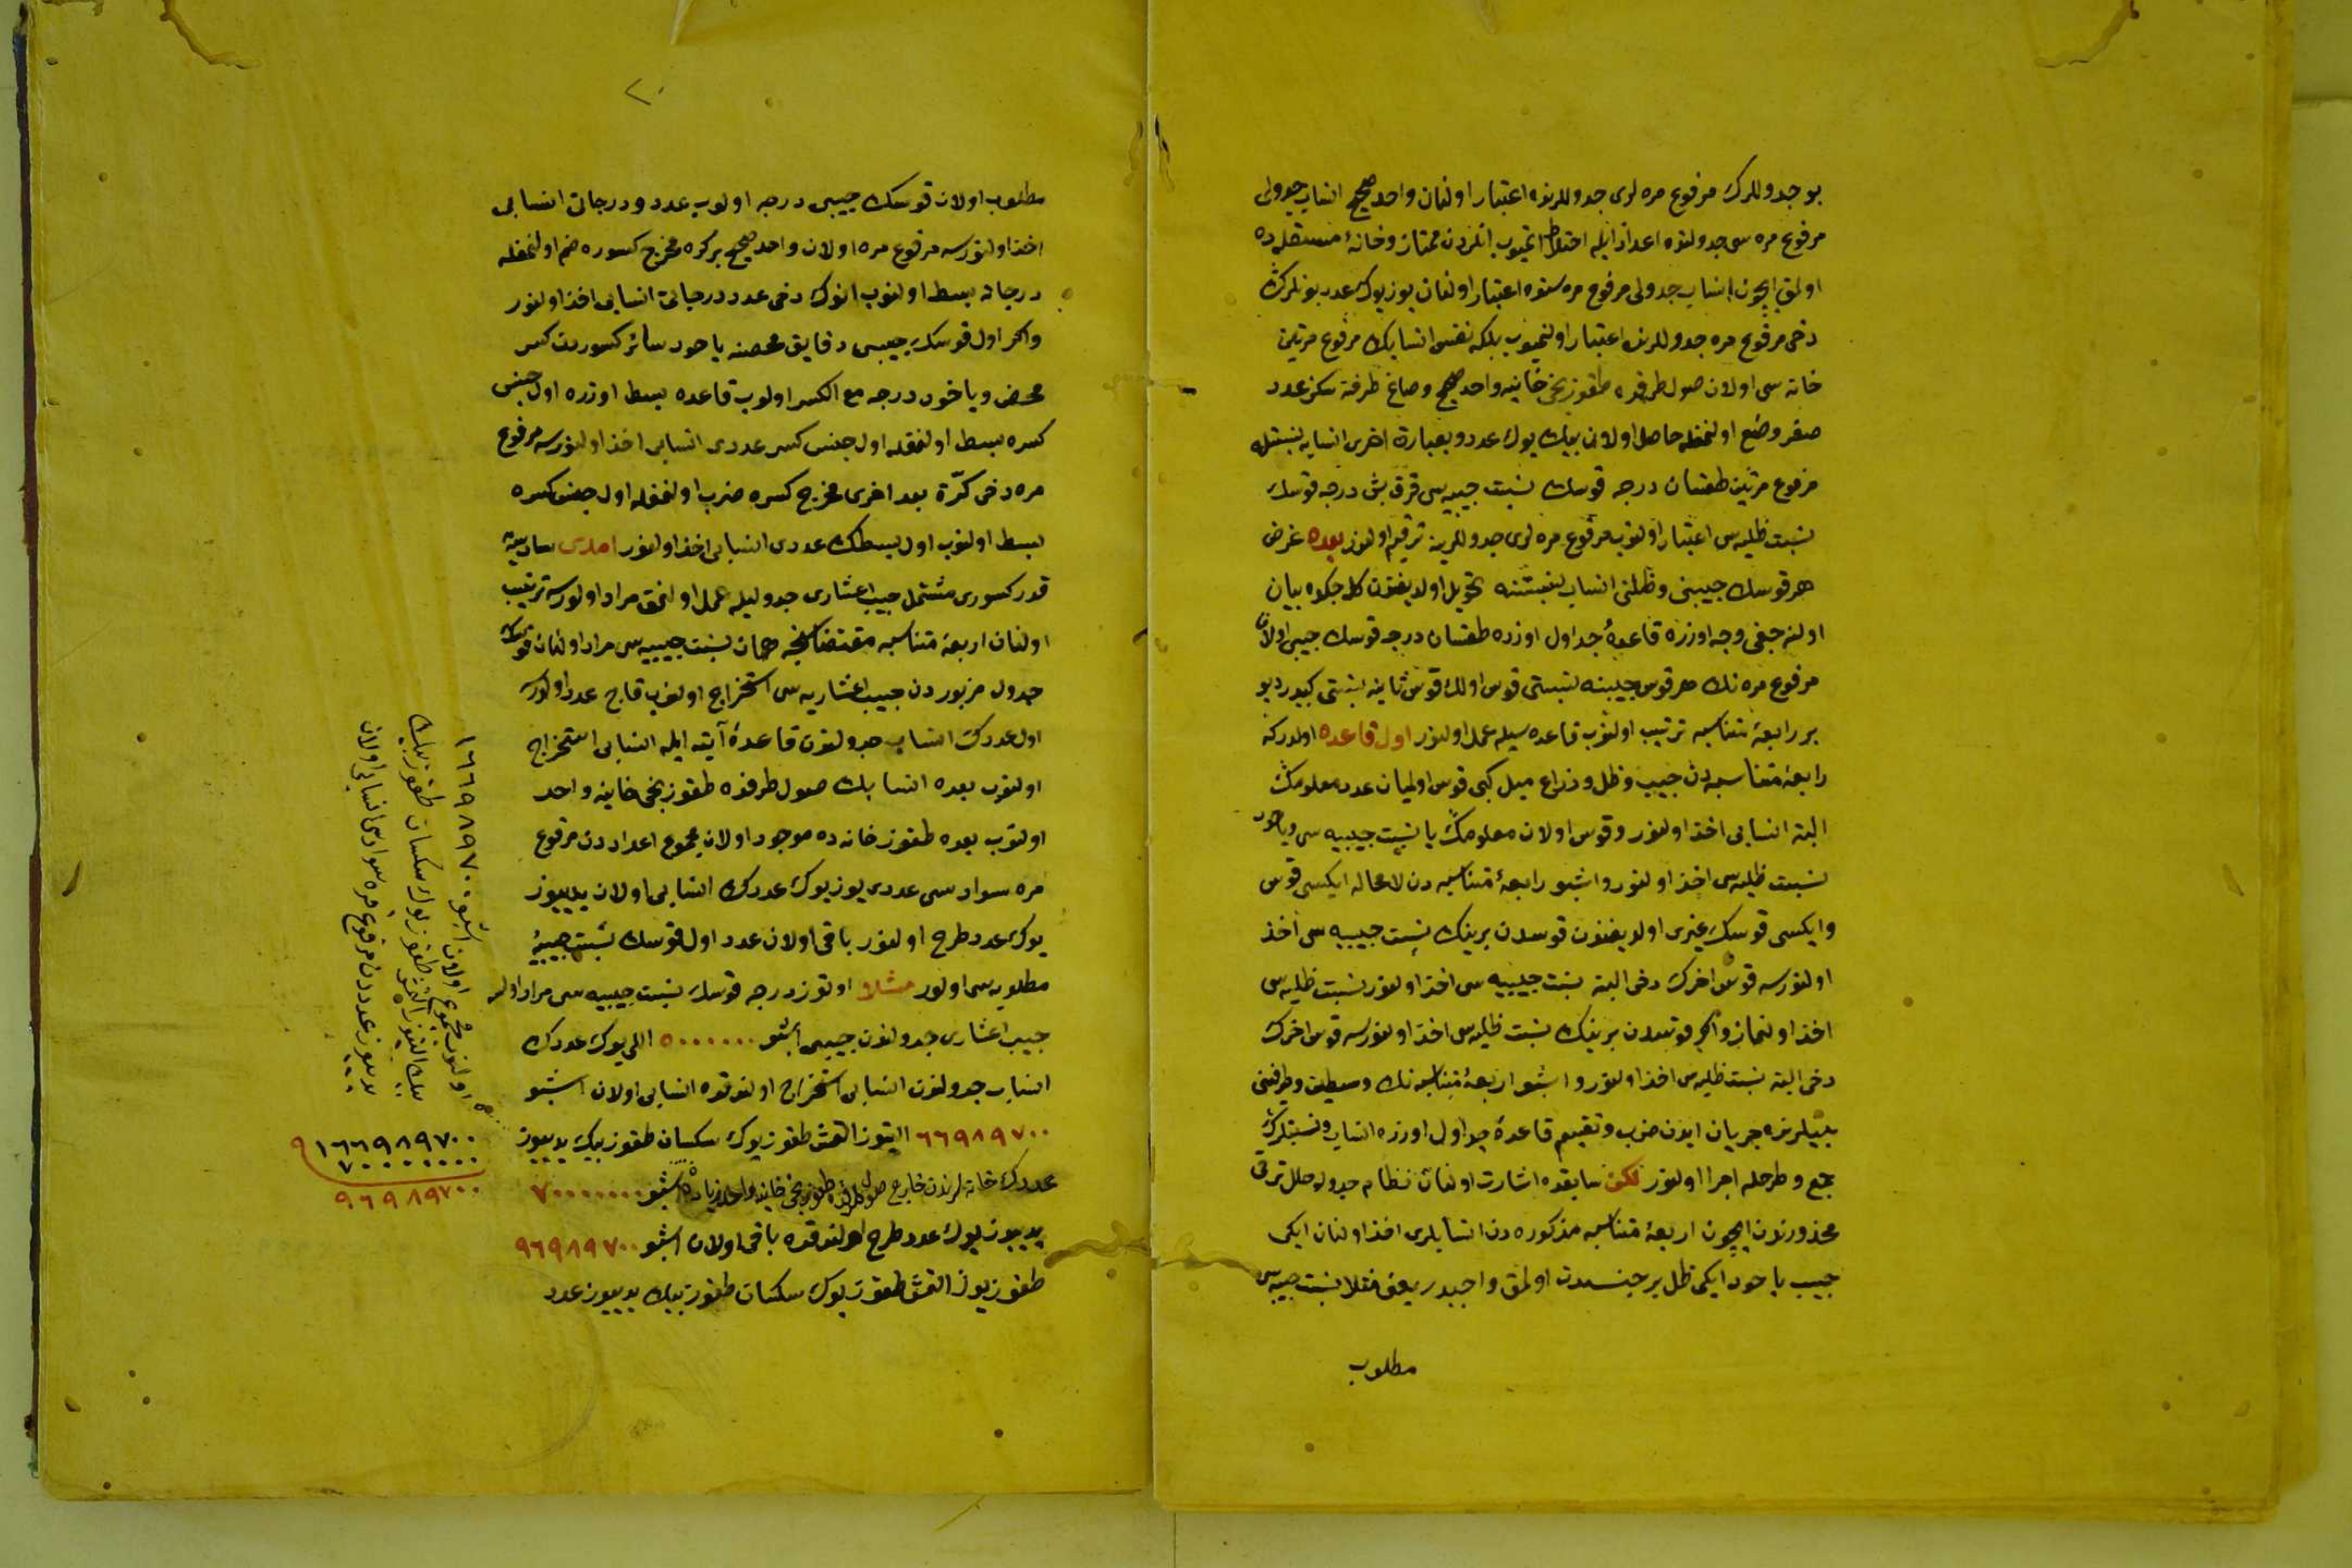 بو جدوللرك مرفوع مره لرى جدوللرنده اعتبار اولنمان واحد صحیح انساب جدولى
مرفوع مره سى جدولنده اعداد ایله اختلاط ایتمیوب انلردن ممتاز و خانهٔ مستقله ده
اولمق ایچون انساب جدولى مرفوع مره سنده اعتبار اولنمان یوز یوك عدد بونلرك
دخى مرفوع مره جدوللرنده اعتبار اولنمیوب بلكه نفس انسابك مرفوع مرتین
خانه سى اولان صول طرفده طقوزنجى خانیه واحد صحیح و صاغ طرفنه سكز عدد
صفر وضع اولنمغله حاصل اولان بیك یوك عدد و بعبارة اخرى انسابه نسبتله
مرفوع مرتین طقسان درجه قوسك نسبت جیبیه سى قرق بش درجه قوسك
نسبت ظلیه سى اعتبار اولنوب مرفوع مره لرى جدوللرینه ترقیم اولنور بعده غرض
هر قوسك جیبنى و ظلنى انساب نسبتنه تحویل اولدیغندن كله جكده بیان
اولنه جغى وجه اوزره قاعدهٔ جداول اوزره طقسان درجه قوسك جیبى اولان
مرفوع مره نك هر قوس جیبنه نسبتى قوس اولك قوس ثانیه نسبتى كبیدر دیو
بر رابعهٔ متناسبه ترتیب اولنوب قاعده سیله عمل اولنور اول قاعده اولدركه
رابعهٔ متناسبه دن جیب و ظل و ذراع میل كبى قوس اولمیان عدد معلومك
البته انسابى اخذ اولنور و قوس اولان معلومك یا نسبت جیبیه سى ویاخود
نسبت ظلیه سى اخذ اولنور و اشبو رابعهٔ متناسبه دن لامحاله ایكیسى قوس
و ایكیسى قوسك غیرى اولدیغندن قوسدن برینك نسبت جیبیه سى اخذ
اولنورسه قوس اخرك دخى البته نسبت جیبیه سى اخذ اولنور نسبت ظلیه سى
اخذ اولنماز و اكر قوسدن برینك نسبت ظلیه سى اخذ اولنورسه قوس اخرك
دخى البته نسبت ظلیه سى اخذ اولنور و اشبو اربعهٔ متناسبه نك وسطین و طرفینى
بینلرنده جریان ایدن ضرب و تقسیم قاعدهٔ جداول اوزره انساب و نسبتلرك
جمع و طرحله اجرا اولنور لكن سابقده اشارت اولنان نظام جدوله خلل ترتب
محذورندن ایچون اربعهٔ متناسبه مذكوره دن انسابلرى اخذ اولنان ایكى
جیب یاخود ایكى ظل بر جنسدن اولمق واجبدر یعنى مثلا نسبت جیبیه سى
مطلوب
٢٠
مطلوب اولان قوسك جیبى درجه اولوب عدد و درجاتى انسابى
اخذ اولنورسه مرفوع مره اولان واحد صحیح بر كره مخرج كسوره ضم اولنمغله
درجاته بسط اولنوب انوك دخى عدد درجاتى انسابى اخذ اولنور
و اكر اول قوسك جیبى دقایق محضه یاخود سائر كسوردن كسر
محض ویاخود درجه مع الكسر اولوب قاعده بسط اوزره اول جنس
كسره بسط اولنمغله اول جنس كسر عددى انسابى اخذ اولنورسه مرفوع
مره دخى كرّة بعد اخرى مخرج كسره ضرب اولنمغله اول جنس كسره
بسط اولنوب اول بسطك عددى انسابى اخذ اولنور امدى سادسه
قدر كسورى مشتمل جیب اعشارى جدولیله عمل اولنمق مراد اولنورسه ترتیب
اولنان اربعهٔ متناسبه مقتضاسنجه همان نسبت جیبیه سى مراد اولنان قوسك
جدول مزبوردن جیب اعشاریه سى استخراج اولنوب قاج عدد اولورسه
اول عددك انساب جدولندن قاعدهٔ آتیه ایله انسابى استخراج
اولنوب بعده انسابك صول طرفنده طقوزنجى خانیه واحد
اولنوب بعده طقوز خانه ده موجود اولان مجموع اعداددن مرفوع
مره سوادسى عددى یوز یوك عددك انسابى اولان یدییوز
یوك عدد طرح اولنور باقى اولان عدد اول قوسك نسبت جیبیهٔ
مطلوبه سى اولور مثلا اوتوز درجه قوسك نسبت جیبیه سى مراد اولسه
جیب اعشارى جدولندن جیبى اشبو ٥٠٠٠٠٠٠ اللى یوك عددك
انساب جدولندن انسابى استخراج اولندقده انسابى اولان اشبو
٦٦٩٨٩٧٠٠ التیوز التمش طقوز یوك سكسان طقوز بیك یدییوز
عددك خانه لرندن خارج صول طرفنده طقوزنجى خانیه واحد زیاده اشبو ٧٠٠٠٠٠٠٠
یدییوز یوك عدد طرح اولندقده باقى اولان اشبو ٩٦٩٨٩٧٠٠
طقوزیوز التمش طقوز یوك سكسان طقوز بیك یدییوز عدد
اولنوب مجموع اولان اشبو ١٦٦٩٨٩٧٠٠
بیك التیوز التمش طقوز یوك سكسان طقوز بیك
یدییوز عدددن مرفوع مره سوادسى انسابى اولان
١٦٦٩٨٩٧٠٠
٧٠٠٠٠٠٠٠
٩٦٩٨٩٧٠٠